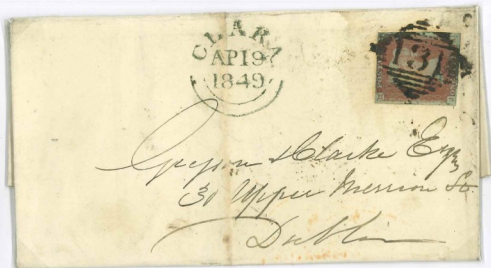 CLARA
AP 19
1849
131
Clarke Esq
31 Upper Merrion St
Dublin